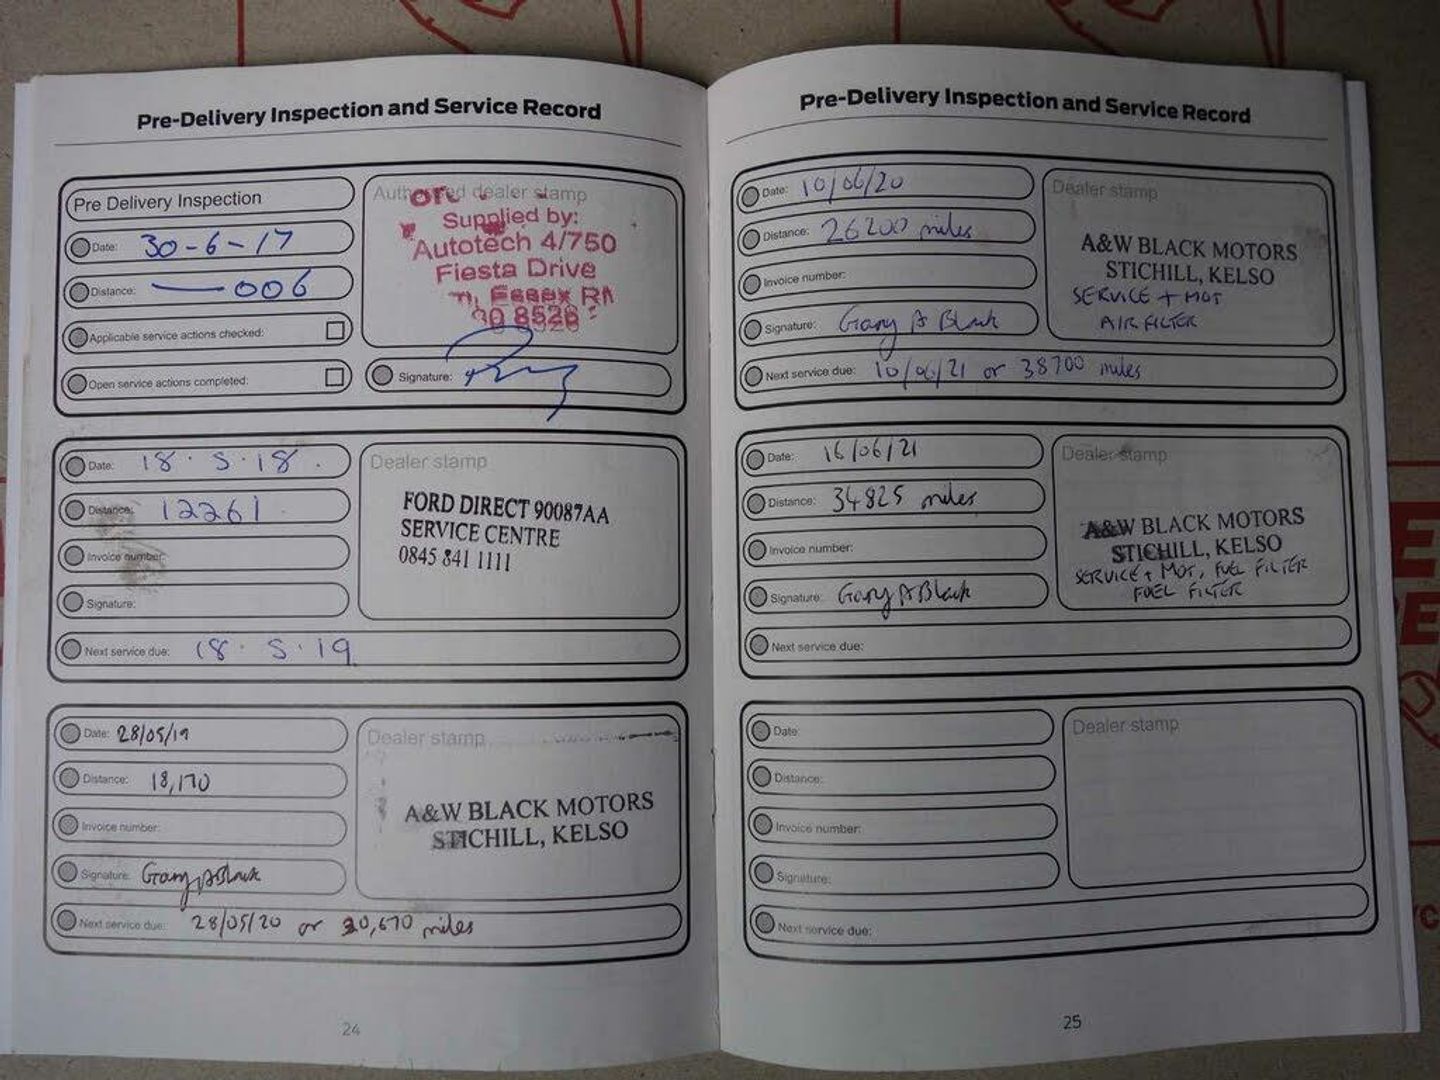 Pre-Delivery Inspection and Service Record
Pre Delivery Inspection
Date: 30-6-17
Distance: — 006
Applicable service actions checked:
Open service actions completed:
Authorised dealer stamp
Supplied by:
Autotech 4/750
Fiesta Drive
Essex RM
0 8526
Signature:
Date: 18.5.18.
Distance: 12261
Invoice number:
Signature:
Next service due: 18.5.19
Dealer stamp
FORD DIRECT 90087AA
SERVICE CENTRE
0845 841 1111
Date: 28/05/19
Distance: 18,170
Invoice number:
Signature: Gary A Black
Next service due: 28/05/20 or 30,670 miles
Dealer stamp
A&W BLACK MOTORS
STICHILL, KELSO
24
Pre-Delivery Inspection and Service Record
Date: 10/06/20
Distance: 26200 miles
Invoice number:
Signature: Gary A Black
Next service due: 10/06/21 or 38700 miles
Dealer stamp
A&W BLACK MOTORS
STICHILL, KELSO
SERVICE + MOT
AIR FILTER
Date: 16/06/21
Distance: 34825 miles
Invoice number:
Signature: Gary A Black
Next service due:
Dealer stamp
A&W BLACK MOTORS
STICHILL, KELSO
SERVICE + MOT, FUEL FILTER
FUEL FILTER
Date:
Distance:
Invoice number:
Signature:
Next service due:
Dealer stamp
25